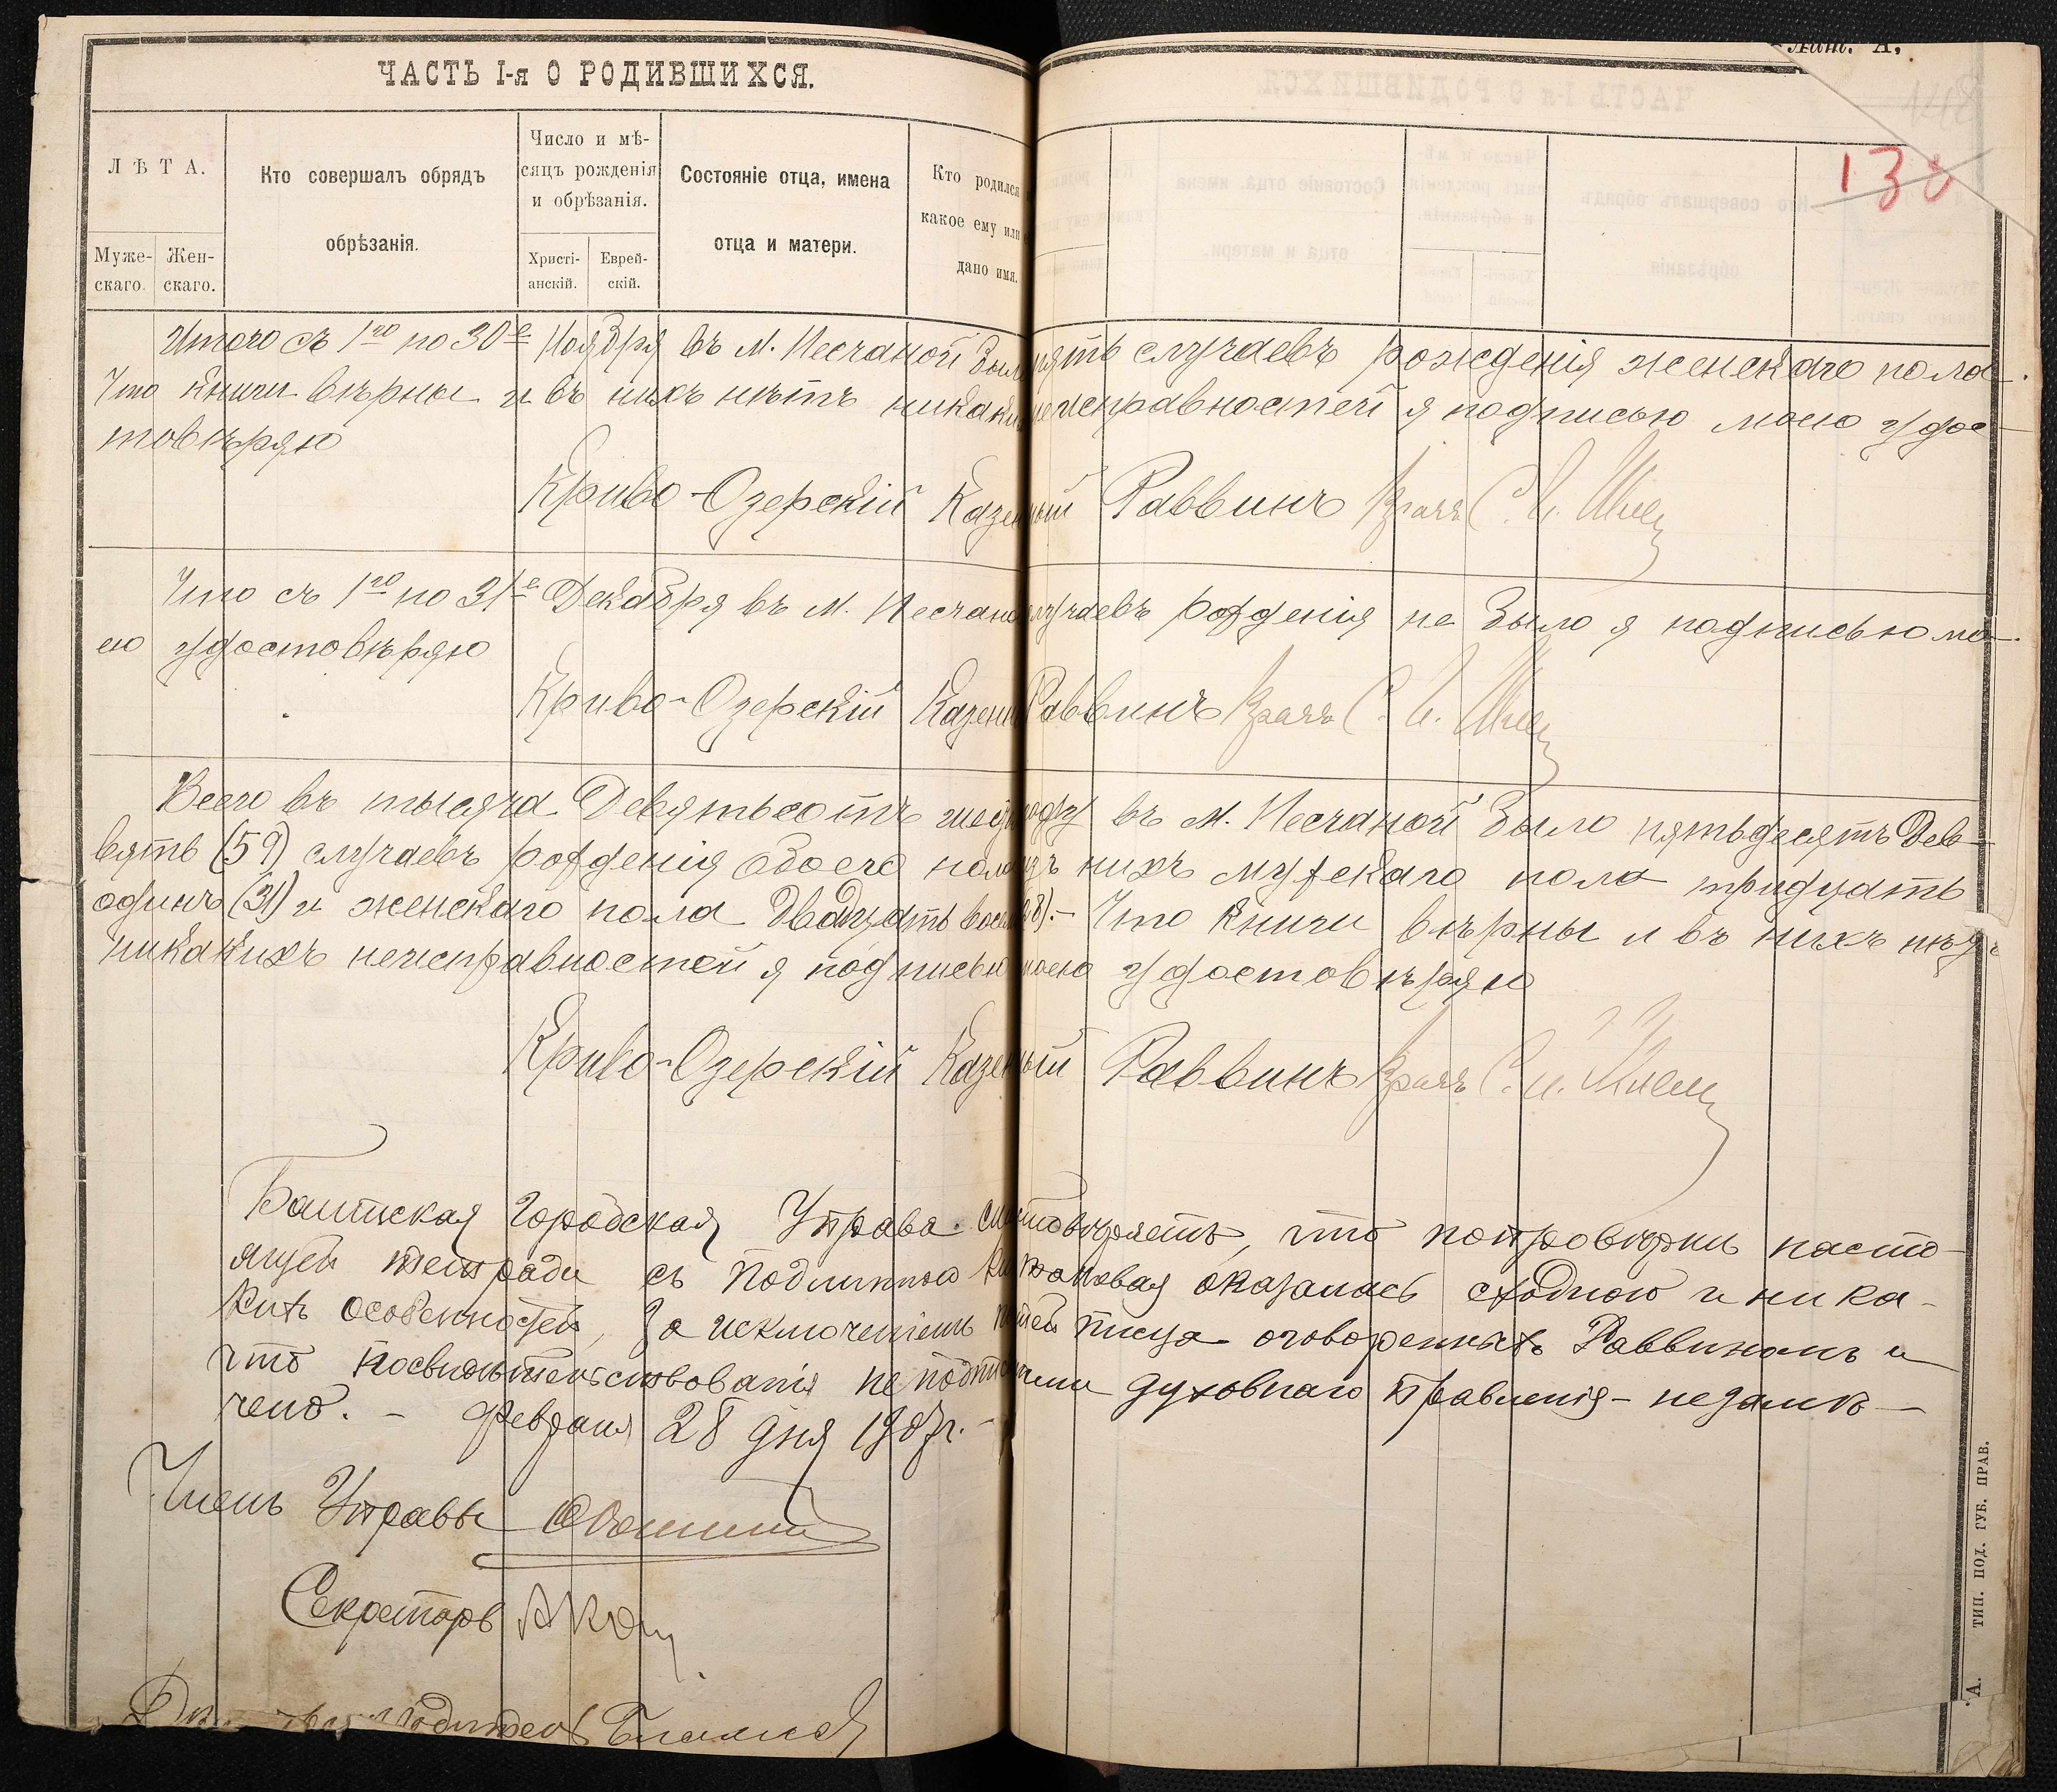 ЧАСТЬ I-я О РОДИВШИХСЯ.
Лит. А.
130
ЛѢТА.
Муже-
скаго.
Жен-
скаго.
Кто совершалъ обрядъ
обрѣзанія.
Число и мѣ-
сяцъ рожденія
и обрѣзанія.
Христі-
анскій.
Еврей-
скій.
Состояніе отца, имена
отца и матери.
Кто родился
какое ему или
дано имя.
Итого съ 1го по 30е Ноября въ м. Песчаной было пять случаевъ рожденія женскаго пола.
Что книги вѣрны и въ нихъ нѣтъ никакихъ неисправностей я подписью моею удос-
товѣряю
Криво-Озерскій Казенный Раввинъ Врачъ С. И.
Что съ 1го по 31е Декабря въ м. Песчаной случаевъ рожденія не было я подписью мо-
ею удостовѣряю
Криво-Озерскій Казенный Раввинъ Врачъ С. И.
Всего въ тысяча Девятьсотъ году въ м. Песчаной было пятьдесятъ Дев-
вять (59) случаевъ рожденія обоего пола изъ нихъ мужскаго пола тридцать
одинъ (31) и женскаго пола Двадцать восемь (28).- Что книги вѣрны и въ нихъ нѣтъ
никакихъ неисправностей я подписью моею удостовѣряю
Криво-Озерскій Казенный Раввинъ Врачъ С. И.
Балтская Городская Управа, что по провѣркѣ насто-
ящей тетради съ подлинною таковая оказалась сходною и ника-
кихъ особенностей, за исключеніемъ писца оговоренныхъ Раввиномъ и
что посвидѣтельствованія не подписи духовнаго правленія - не замѣ-
чено. - Февраля 28 дня 1907г. -
Членъ Управы
Секретарь
ТИП. ПОД. ГУБ. ПРАВ.
А.